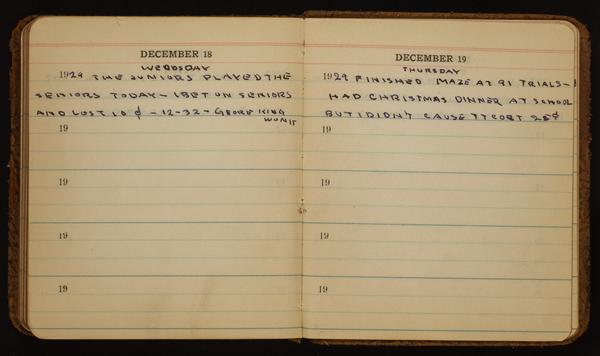 DECEMBER 18
WEDDSDAY
1929 THE JUNIORS PLAYED THE
SENIORS TODAY - I BET ON SENIORS
AND LOST 10 ¢ - 12-32 - GEORE KING
WON IT
19
19
19
19
DECEMBER 19
THURSDAY
1929 FINISHED MAZE AT 91 TRIALS - I
HAD CHRISTMAS DINNER AT SCHOOL
BUT I DIDN'T CAUSE IT COST 25¢
19
19
19
19